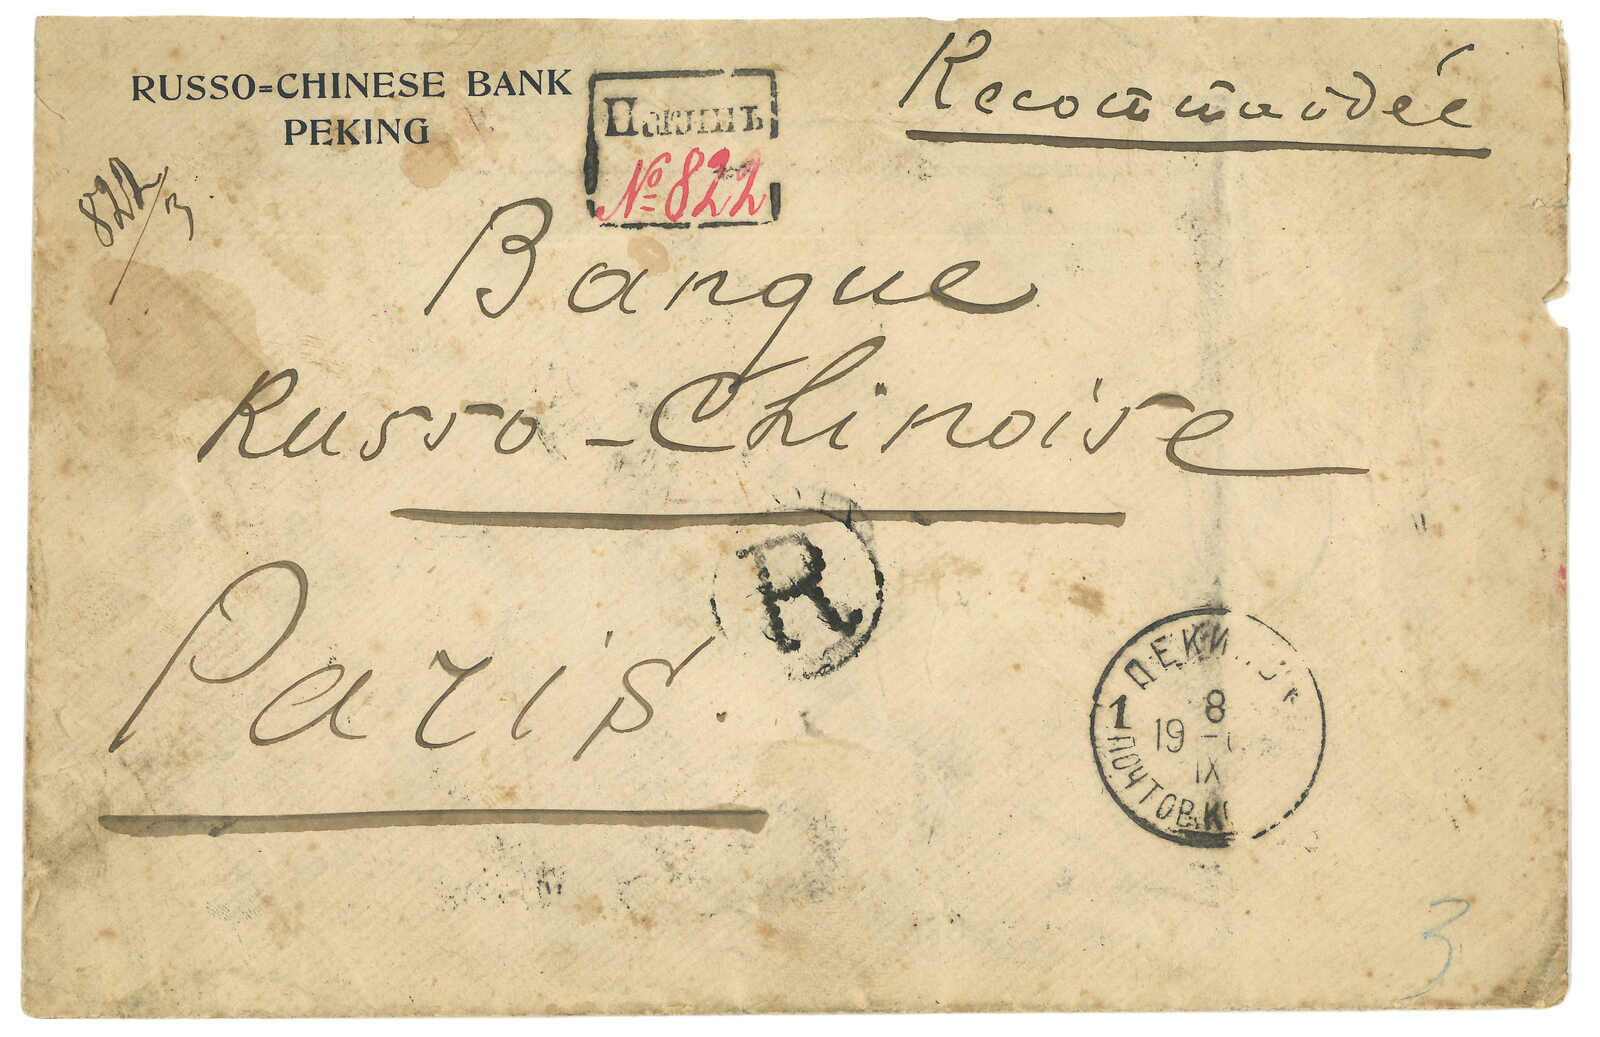 RUSSO=CHINESE BANK
PEKING
Пекинъ
№ 822
Recommandée
822/3
Banque
Russo-Chinoise
Paris.
R
ПЕКИН
1
8
19
IX
ПОЧТОВ.К
3